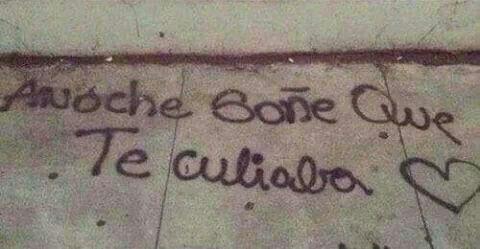 Anoche soñe Que
Te culiaba